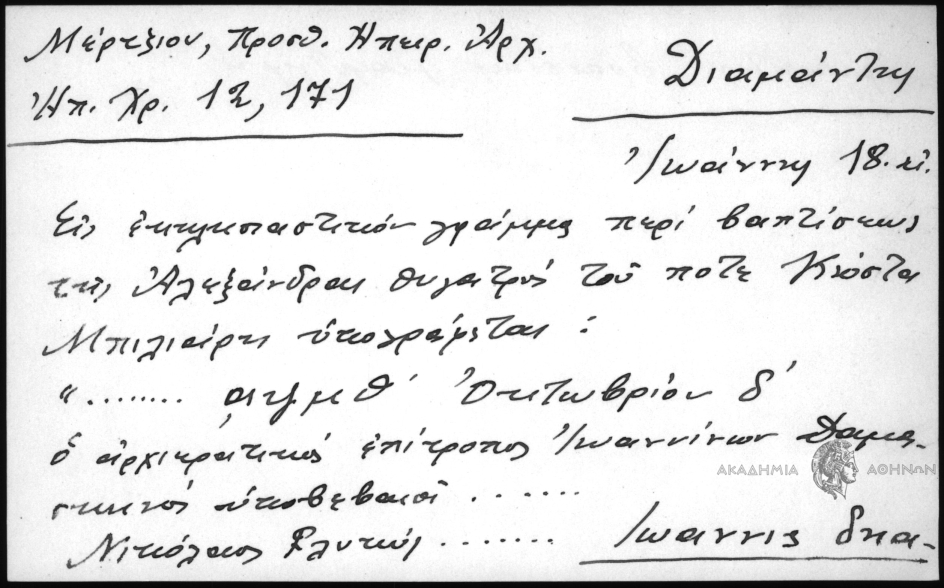 Μέρτζιον, Προσθ. Ηπειρ. Ἀρχ.
Ἠπ. Χρ. 12, 171
Διαμάντης
Ἰωάννης 18. αἰ.
Εἰς ἐκκλησιαστικόν γράμμα περί βαπτίσεως
τῆς Ἀλεξάνδρας θυγατρός τοῦ ποτε Κώστα
Μπιλιάρη ὑπογράφεται :
"........ αψμθ' Ὀκτωβρίου δ'
ὁ ἀρχιερατικός ἐπίτροπος Ἰωαννίνων Δαμα-
σκηνός ὑποβεβαιοῖ .......
Νικόλαος Γλυκύς ........ Ἰωάννις δηα-
ΑΚΑΔΗΜΙΑ ΑΘΗΝΩΝ